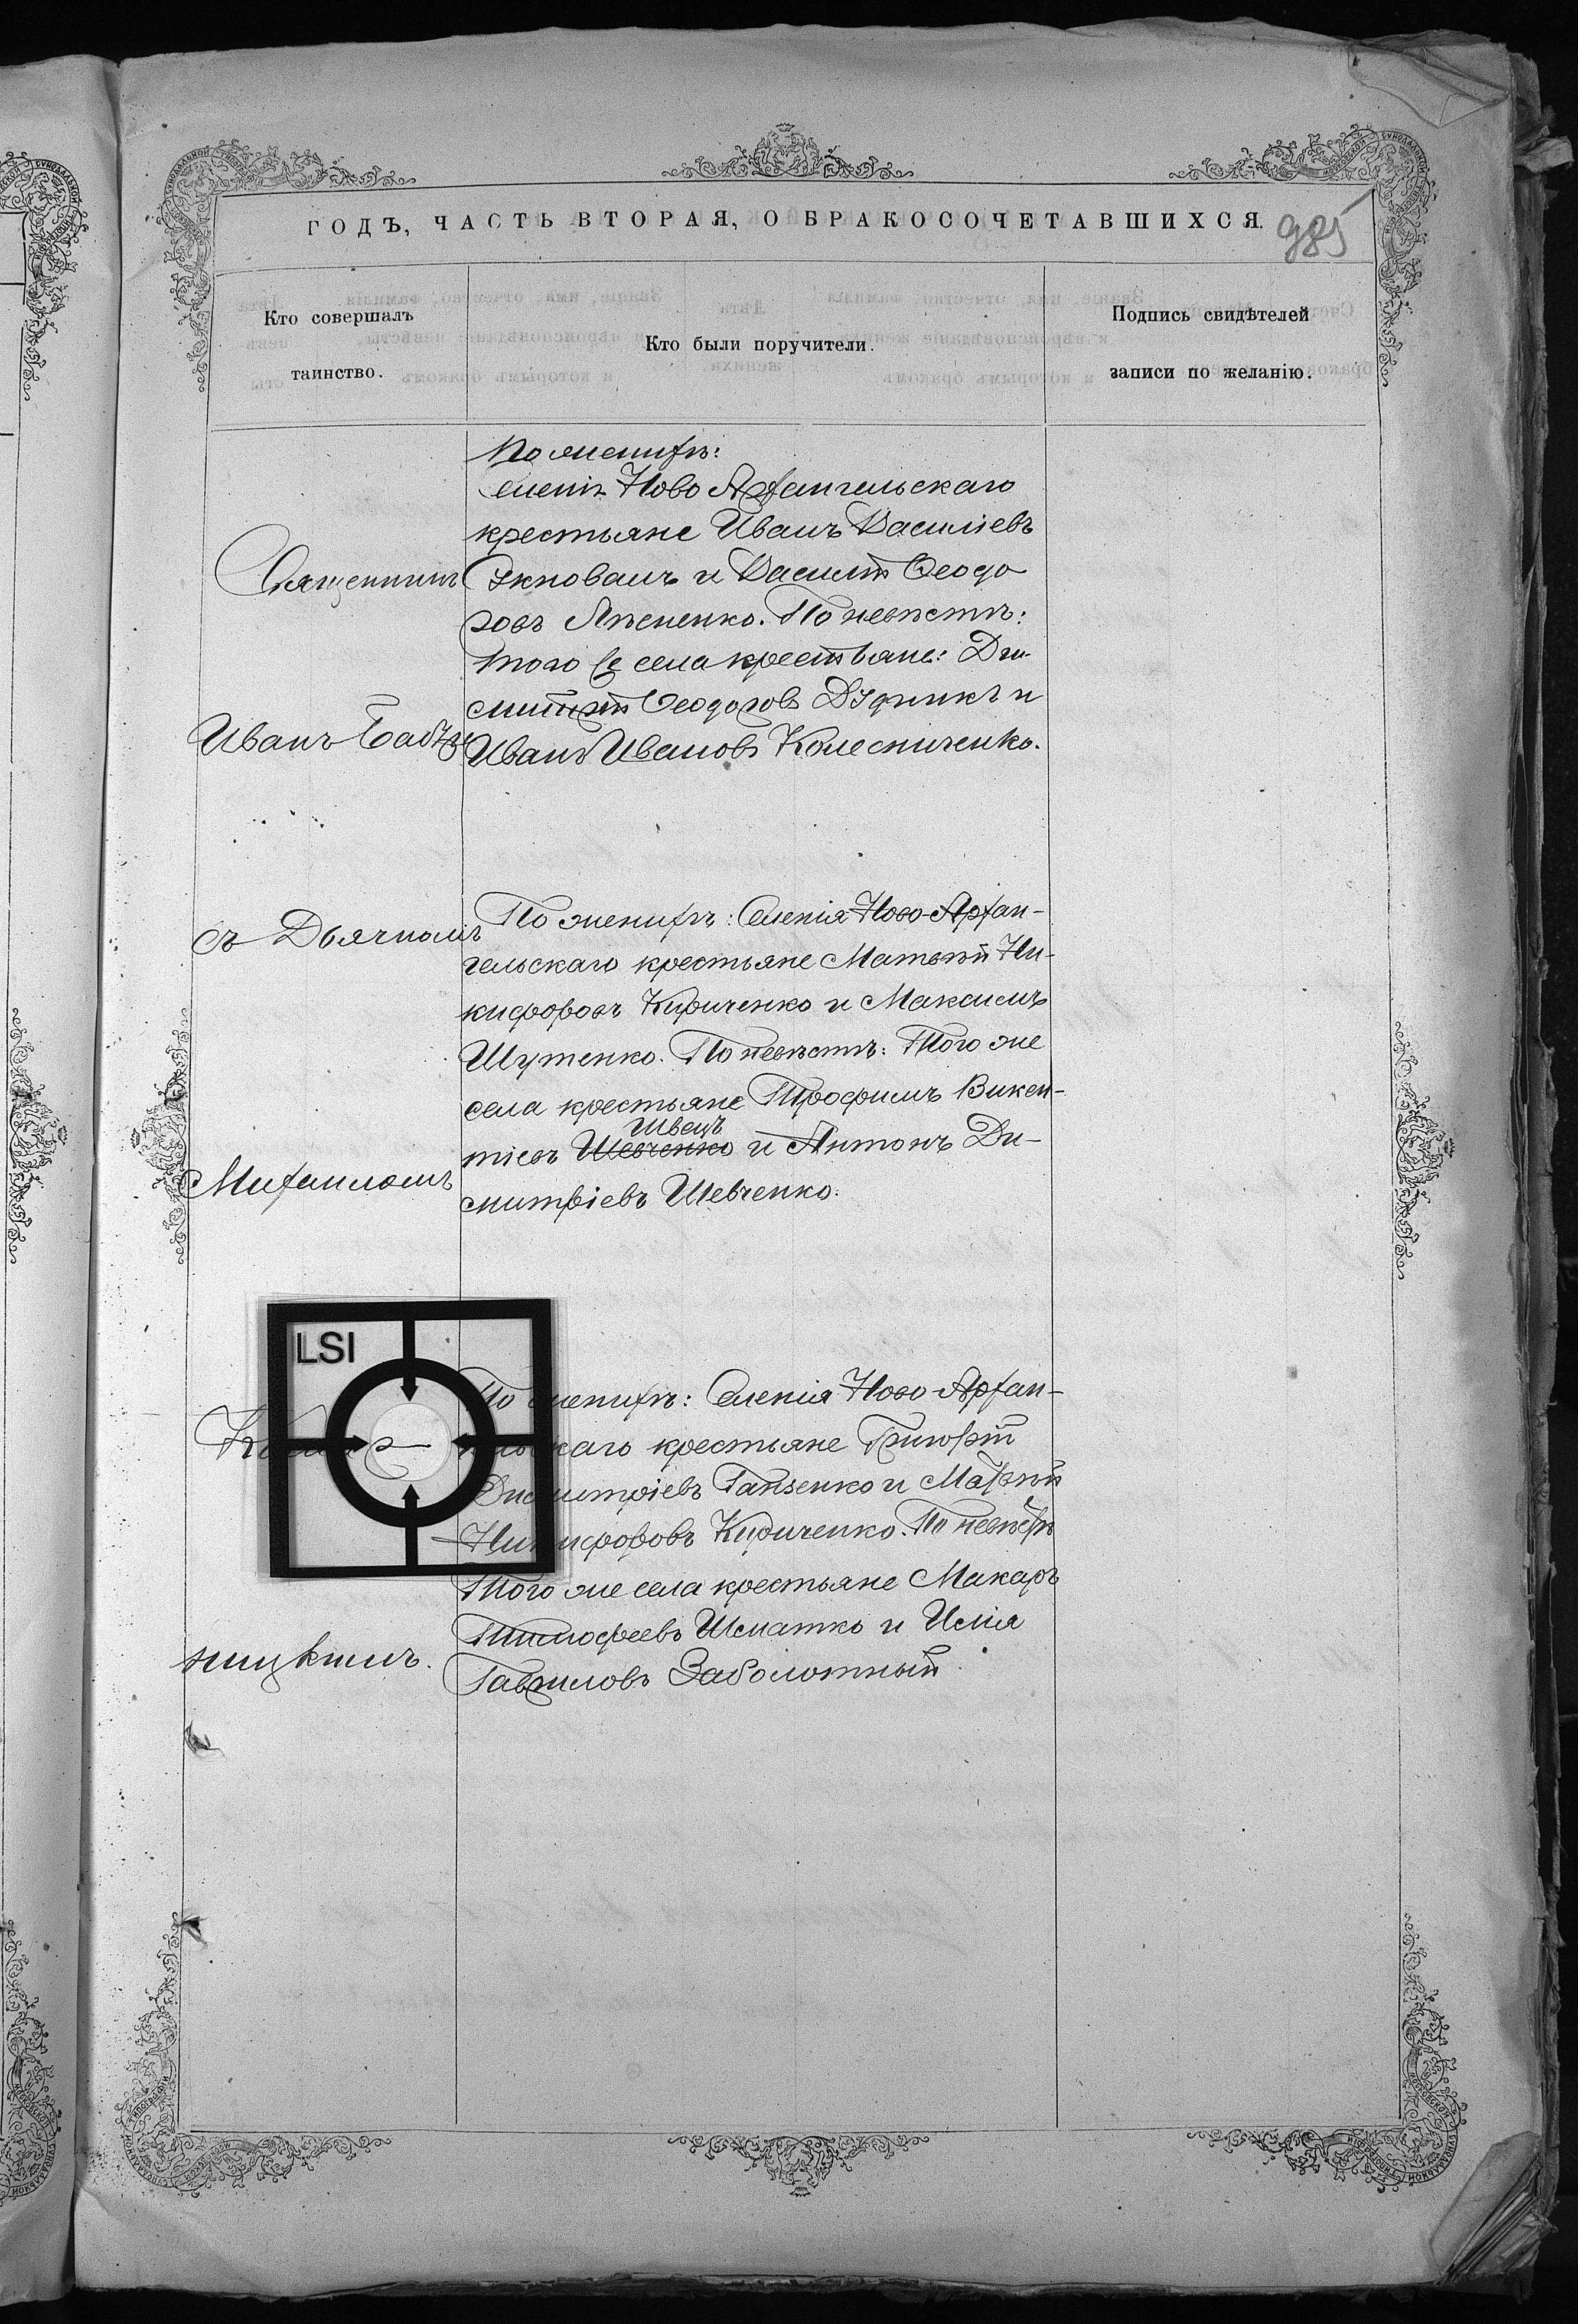 ГОДЪ, ЧАСТЬ ВТОРАЯ, О БРАКОСОЧЕТАВШИХСЯ.
985
Кто совершалъ
таинство.
Кто были поручители.
Подпись свидѣтелей
записи по желанію.
По женихѣ:
Ново Архангельскаго
крестьяне Иванъ Василіевъ
и Василій Ѳеодо
ровъ Япененко. По невѣстѣ:
того же села крестьяне: Ди-
митрій Ѳеодоровъ Дудникъ и
Иванъ Ивановъ Колесниченко.
Священникъ
Иванъ
съ Дьячкомъ
Михаиломъ
ницкимъ.
По женихѣ: Селенія Ново-Архан-
гельскаго крестьяне Матвѣй Ни-
кифоровъ Кириченко и Максимъ
Шутенко. По невѣстѣ: Того же
села крестьяне Трофимъ Викен-
Швецъ
тіевъ Шевченко и Антонъ Ди-
митріевъ Шевченко.
LSI
По женихѣ: Селенія Ново-Архан-
гельскаго крестьяне Григорій
Димитріевъ Ганзенко и
Никифоровъ Кириченко. По невѣстѣ
Того же села крестьяне Макаръ
Тимофеевъ Шматко и Илія
Гавриловъ Заболотный.